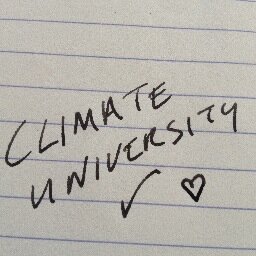 CLIMATE
UNIVERSITY
✓ ♡